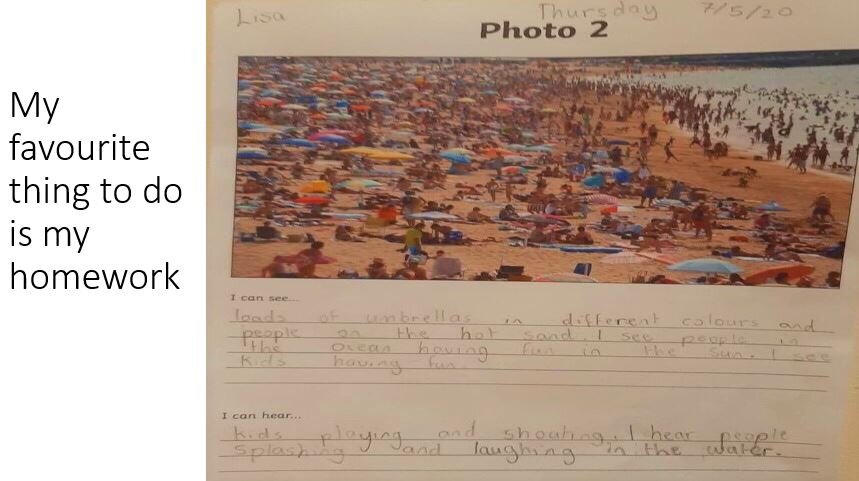 My
favourite
thing to do
is my
homework
Lisa Thursday 7/5/20
Photo 2
I can see...
loads of umbrellas in different colours and
people on the hot sand. I see people in
the ocean having fun in the sun. I see
kids having fun.
I can hear...
kids playing and shouting. I hear people
splashing and laughing in the water.